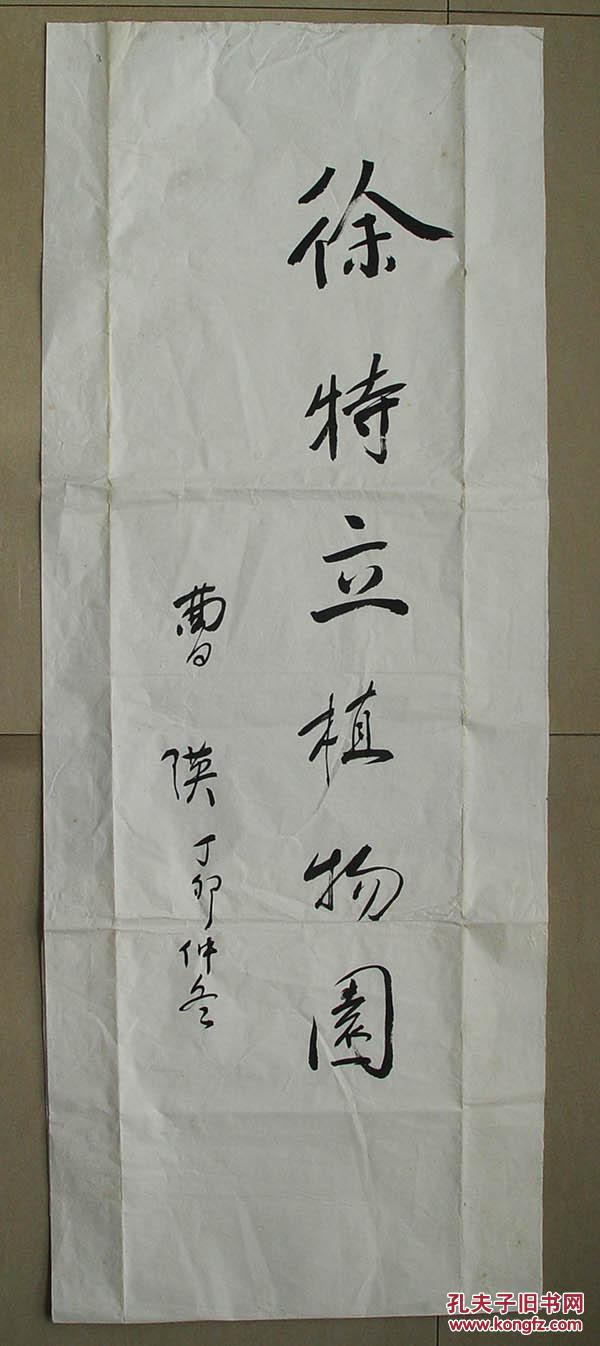 徐特立植物園
曹瑛 丁卯仲冬
孔夫子旧书网
www.kongfz.com